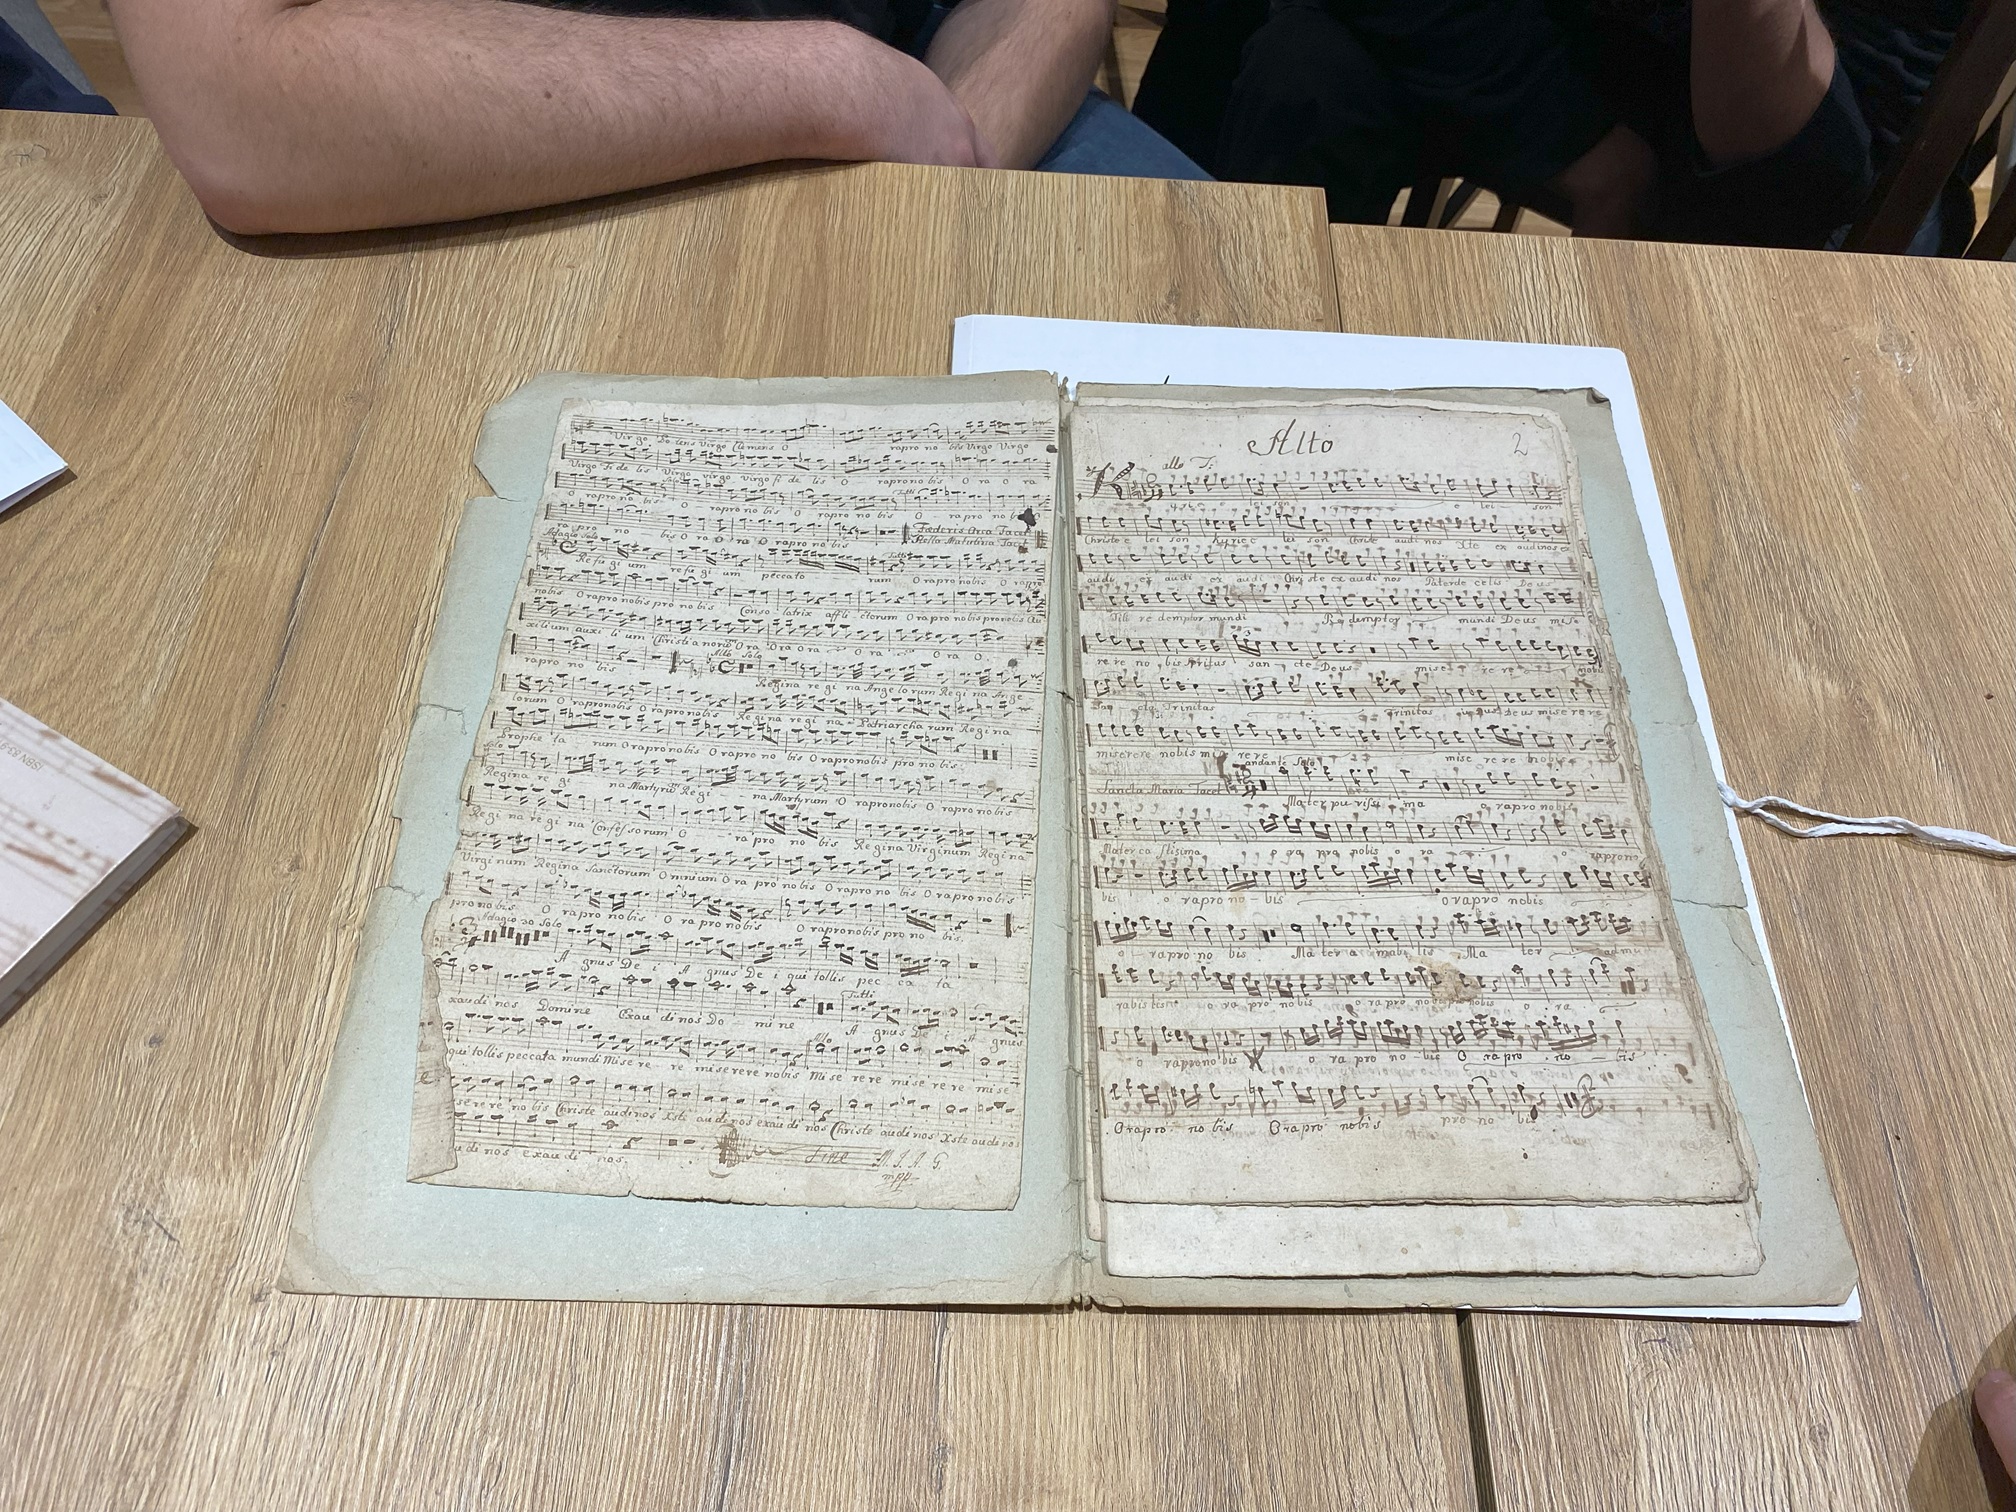 Virgo Po tens Virgo Clemens O rapro no bis Virgo Virgo
Virgo Fi de lis Virgo virgo virgo fi de lis O rapro no bis O ra O ra
O rapro no bis O rapro no bis O rapro no bis O rapro no bis O
ra pro no bis O ra O ra O rapro no bis Foederis Arca Tacet
Stella Matutina Tacet
Adagio Solo Tutti
Refu gi um refu gi um peccato rum O rapro nobis O rapro
nobis O rapro nobis pro nobis Conso latrix affli ctorum O rapro nobis pro nobis Au
xilium auxi li um Christi a norum O ra O ra O ra O ra O ra O
rapro no bis
Allo Solo
Regina re gi na Ange lorum Regi na Ange
lorum O rapronobis O rapro nobis Regina regi na Patriarcha rum Regina
Prophe ta rum O rapro nobis O rapro no bis O rapronobis pro no bis.
Solo
Regina re gi na Martyrum Regi na Martyrum O rapronobis O rapro nobis
Regi na re gi na Confessorum O ra pro no bis Regina Virginum Regina
Virgi num Regina Sanctorum Omnium O ra pro nobis O rapro no bis O rapro nobis
pro nobis O rapro nobis O ra pro nobis O rapronobis pro no bis.
Adagio Solo
A gnus De i A gnus De i qui tollis pec ca ta
Tutti
xaudi nos Domine Exau di nos Do mi ne A gnus De A gnus
Allo
qui tollis peccata mundi Mise re re miserere nobis Mise re re mi se re re mise
serere no bis Christe audinos Xste audi nos exau di nos Christe audi nos Xste audi no
u di nos exau di nos.
Fine M. J. A. G.
mpp
Alto 2
allo T:
K
yrie e lei son e lei son
Christe e lei son Kyrie e lei son Christe audi nos Xte ex audinos ex
audi ex audi ex audi Christe ex audi nos Pater de celis Deus
Filli re demptor mundi Redemptor mundi Deus mise
re re no bis Spritus san cte Deus mise re re nobis
San cta Trinitas Trinitas unus Deus mise re re
miserere nobis mi re re mise re re nobis
andante Solo
Sancta Maria Tacet Mater pu rissi ma o rapro nobis
Mater ca stissima o ra pro nobis o ra o rapron
bis o rapro no - bis o rapro nobis
o rapro no bis Ma ter a mabi lis Ma ter admi
rabilis o ra pro nobis o ra pro nobis o ra
o rapro no bis o ra pro no - bis O rapro no - bis
Orapro no bis Orapro nobis pro no bis
ISBN 83-9